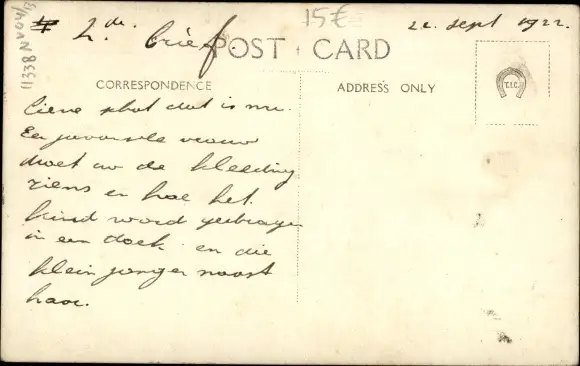 2de brief. 15€ 22 sept 1922.
POST CARD
CORRESPONDENCE
ADDRESS ONLY
T.I.C.
Lieve schat dat is nu.
Een javaansche vrouw
moet uw de kleeding
ziens en hoe het
kind word gedragen
in een doek en die
klein jonger naast
haar.